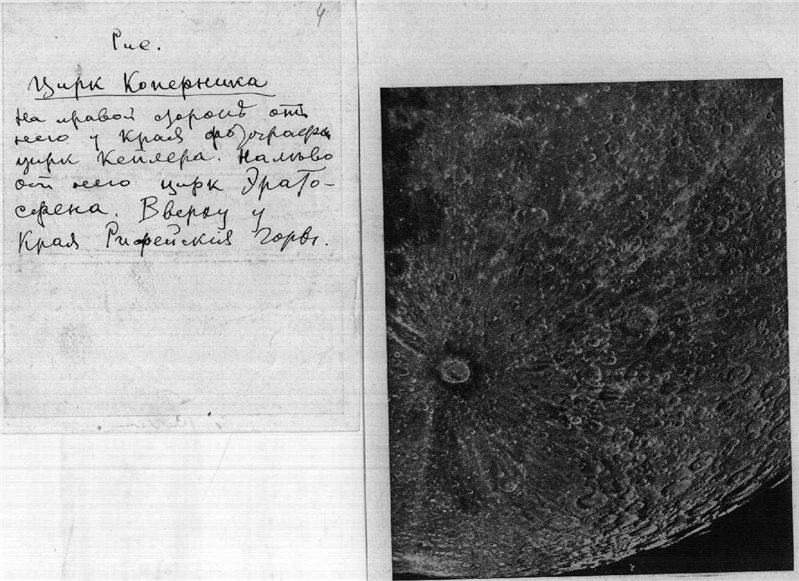 4
Рис.
Цирк Коперника
на правой стороне от
него у края фотографии
цирк Кеплера. Налево
от него цирк Эрато-
сфена. Вверху у
края Рифейския горы.